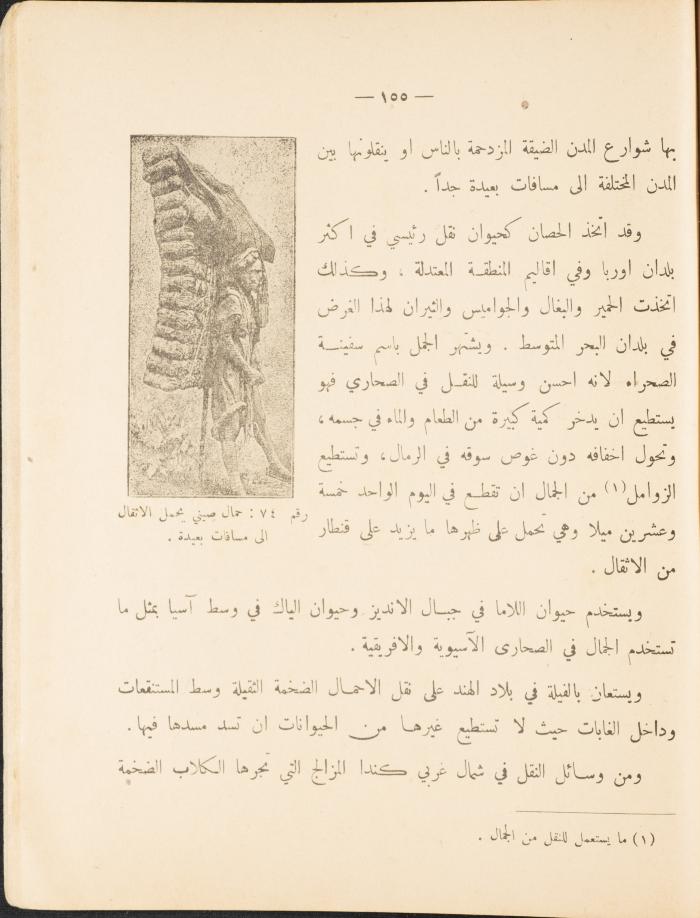 — ١٥٥ —
بها شوارع المدن الضيقة المزدحمة بالناس او ينقلونها بين
المدن المختلفة الى مسافات بعيدة جداً .
وقد اتخذ الحصان كحيوان نقل رئيسي في اكثر
بلدان اوربا وفي اقاليم المنطقة المعتدلة ، وكذلك
اتخذت الحمير والبغال والجواميس والثيران لهذا الغرض
في بلدان البحر المتوسط . ويشتهر الجمل باسم سفينة
الصحراء لانه احسن وسيلة للنقل في الصحاري فهو
يستطيع ان يدخر كمية كبيرة من الطعام والماء في جسمه ،
وتحول اخفافه دون غوص سوقه في الرمال ، وتستطيع
الزوامل (١) من الجمال ان تقطع في اليوم الواحد خمسة
وعشرين ميلا وهي تحمل على ظهرها ما يزيد على قنطار
من الاثقال .
رقم ٧٤ : حمال صيني يحمل الاثقال
الى مسافات بعيدة .
ويستخدم حيوان اللاما في جبال الانديز وحيوان الياك في وسط آسيا بمثل ما
تستخدم الجمال في الصحارى الآسيوية والافريقية .
ويستعان بالفيلة في بلاد الهند على نقل الاحمال الضخمة الثقيلة وسط المستنقعات
وداخل الغابات حيث لا تستطيع غيرها من الحيوانات ان تسد مسدها فيها .
ومن وسائل النقل في شمال غربي كندا المزالج التي تجرها الكلاب الضخمة
(١) ما يستعمل للنقل من الجمال .